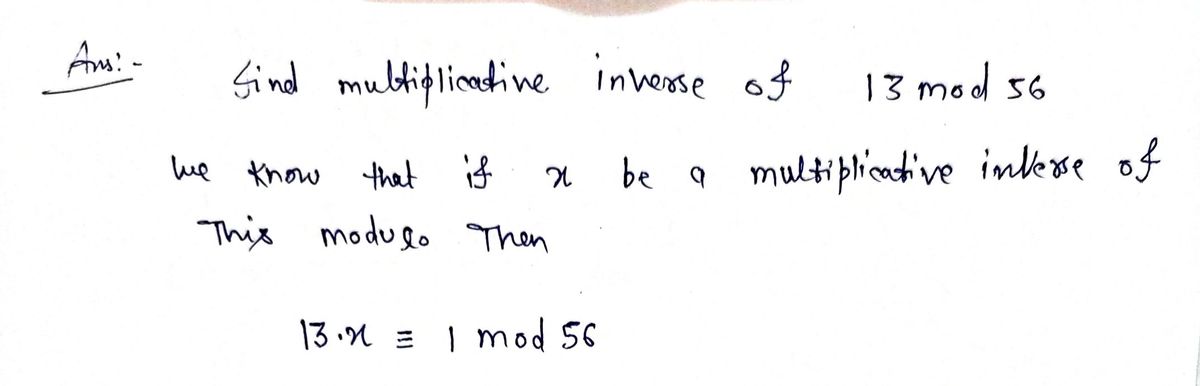 Ans:-
find multiplicative inverse of 13 mod 56
we know that if x be a multiplicative inverse of
This modulo Then
13.x ≡ 1 mod 56